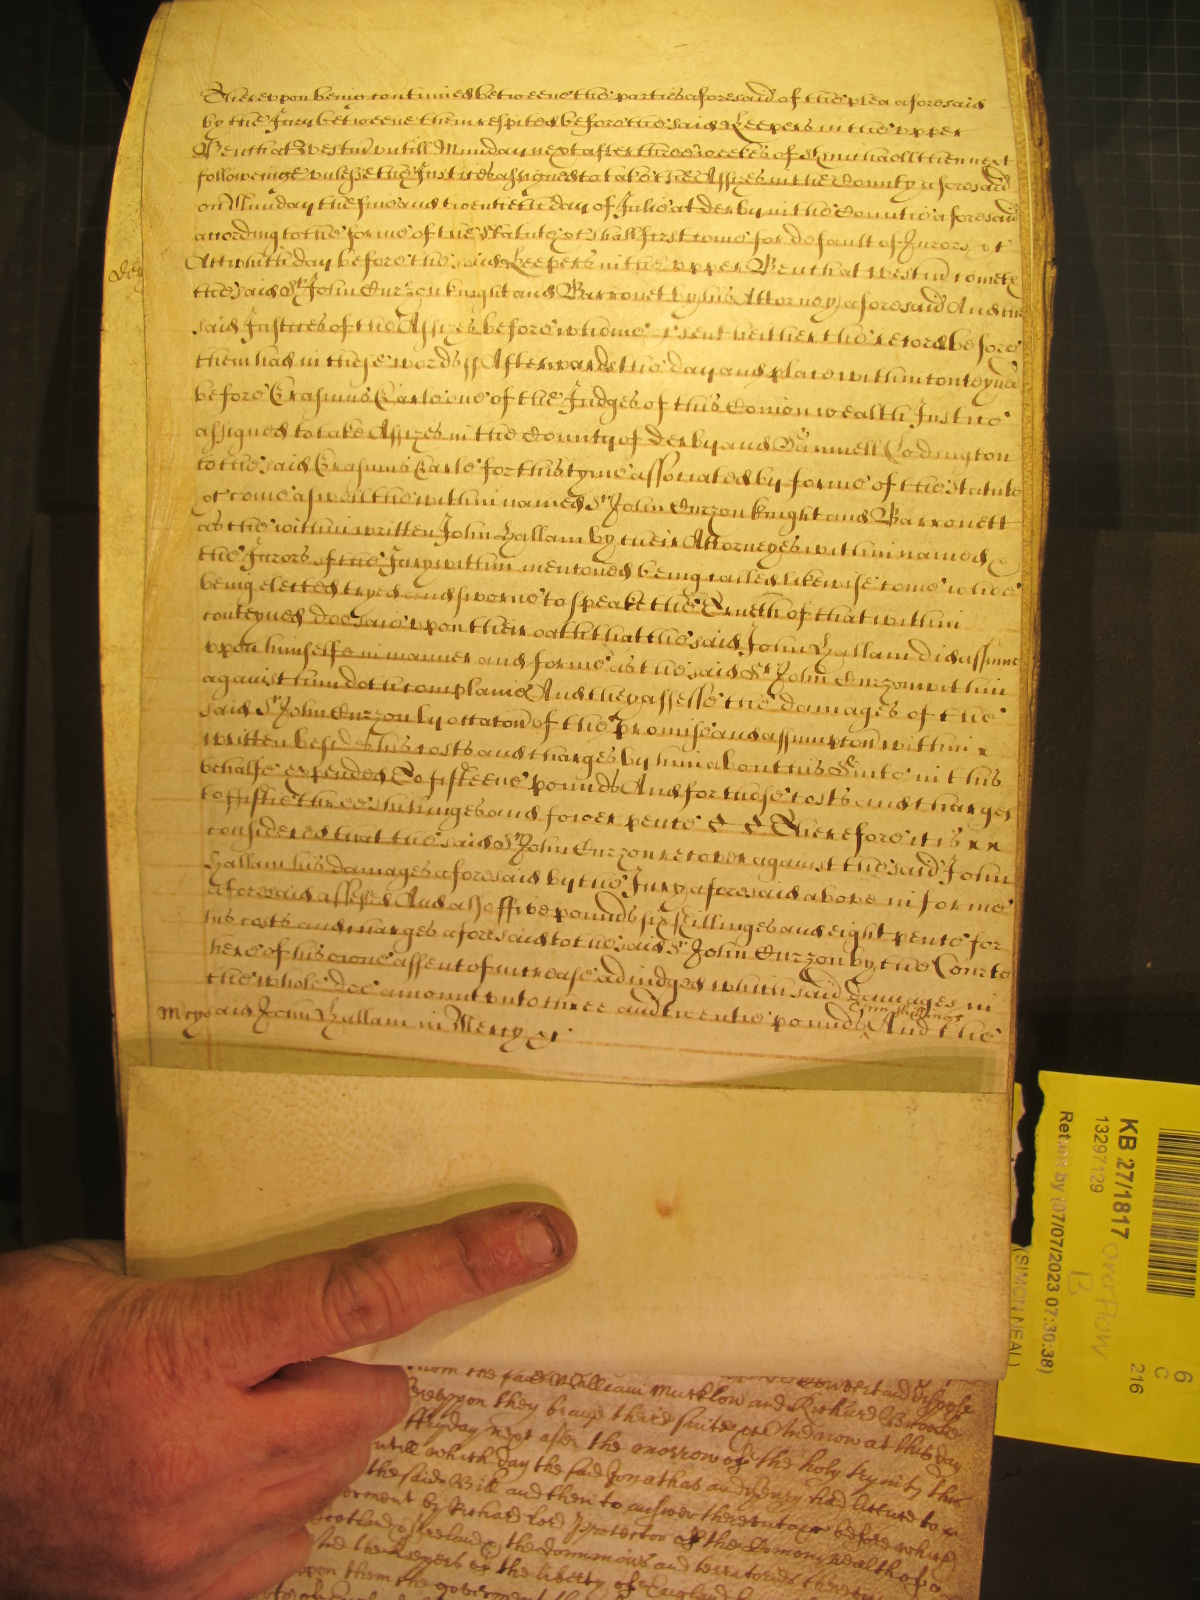 Thereupon being continued betweene the parties aforesaid of the plea aforesaid
by the Jury betweene them respited before the said Keepers in the upper
Bench at Westmr untill Munday next after three weekes of St Michaell then next
followeinge unlesse the Justices assigned to take the Assizes in the County aforesaid
on Munday the five and twentieth day of Julie at derby in the Countie aforesaid
according to the forme of the Statute &c shall first come for default of Jurors &c
Att which day before the said Keepers in the upper Bench at Westmr cometh
the said Sr John Curzon knight and Barronet by his Attorney aforesaid And the
said Justices of the Assizes before whome &c sent hether the record before
them had in these words ss Afterwards the day and place within conteyned
before Erasmus Earle one of the Judges of this Comon wealth Justice
assigned to take Assizes in the County of derby and Samuell Codington
to the said Erasmus Earle for this tyme associated by forme of the Statute
&c come aswell the within named Sr John Curzon knight and Barronett
as the within written John Hallam by their Attorneyes within named
the Jurors of the Jury within mentoned being called likewise come whoe
being elected tryed and sworne to speake the Trueth of that within
conteyned doe saie upon their oath that the said John Hallam did assume
upon himselfe in manner and forme as the said Sr John Curzon within
against him doth complaine And they assesse the damages of the
said Sr John Curzon by occaton of the promise and assumpton within
written besides his costs and charges by him about his Suite in this
behalfe expended To fifteene pounds And for those costs and charges
to fiftie three shillinges and fower pence & & Therefore it is
considered that the said Sr John Curzon recover against the said John
Hallam his damages aforesaid by the Jury aforesaid above in forme
aforesaid assessed And also five pounds six shillinges and eight pence for
his costs and charges aforesaid to the said Sr John Curzon by the Court
here of his owne assent of increase adiudged which said damages in
the whole doe amount unto three and twentie pounds And the
Mcy said John Hallam in Mercy &c
KB 27/1817
13297129
Return by (07/07/2023 07:30:38)
(SIMON NEAL)
overflow
B
6
C
216
from the said William Mucklow and Richard Brooke
Thereuppon they bringe their suite &c And now at this day
ffryday next after the morrow of the holy trynity this
untill which day the said Jonathas and Henry had licence to
the said Bill and then to answer thereunto &c before which
by Richard lord protector of the Comonwealth of
Scotland & Ireland & the dominions and territories thereunto
the Keepers of the liberty of England
upon them the government